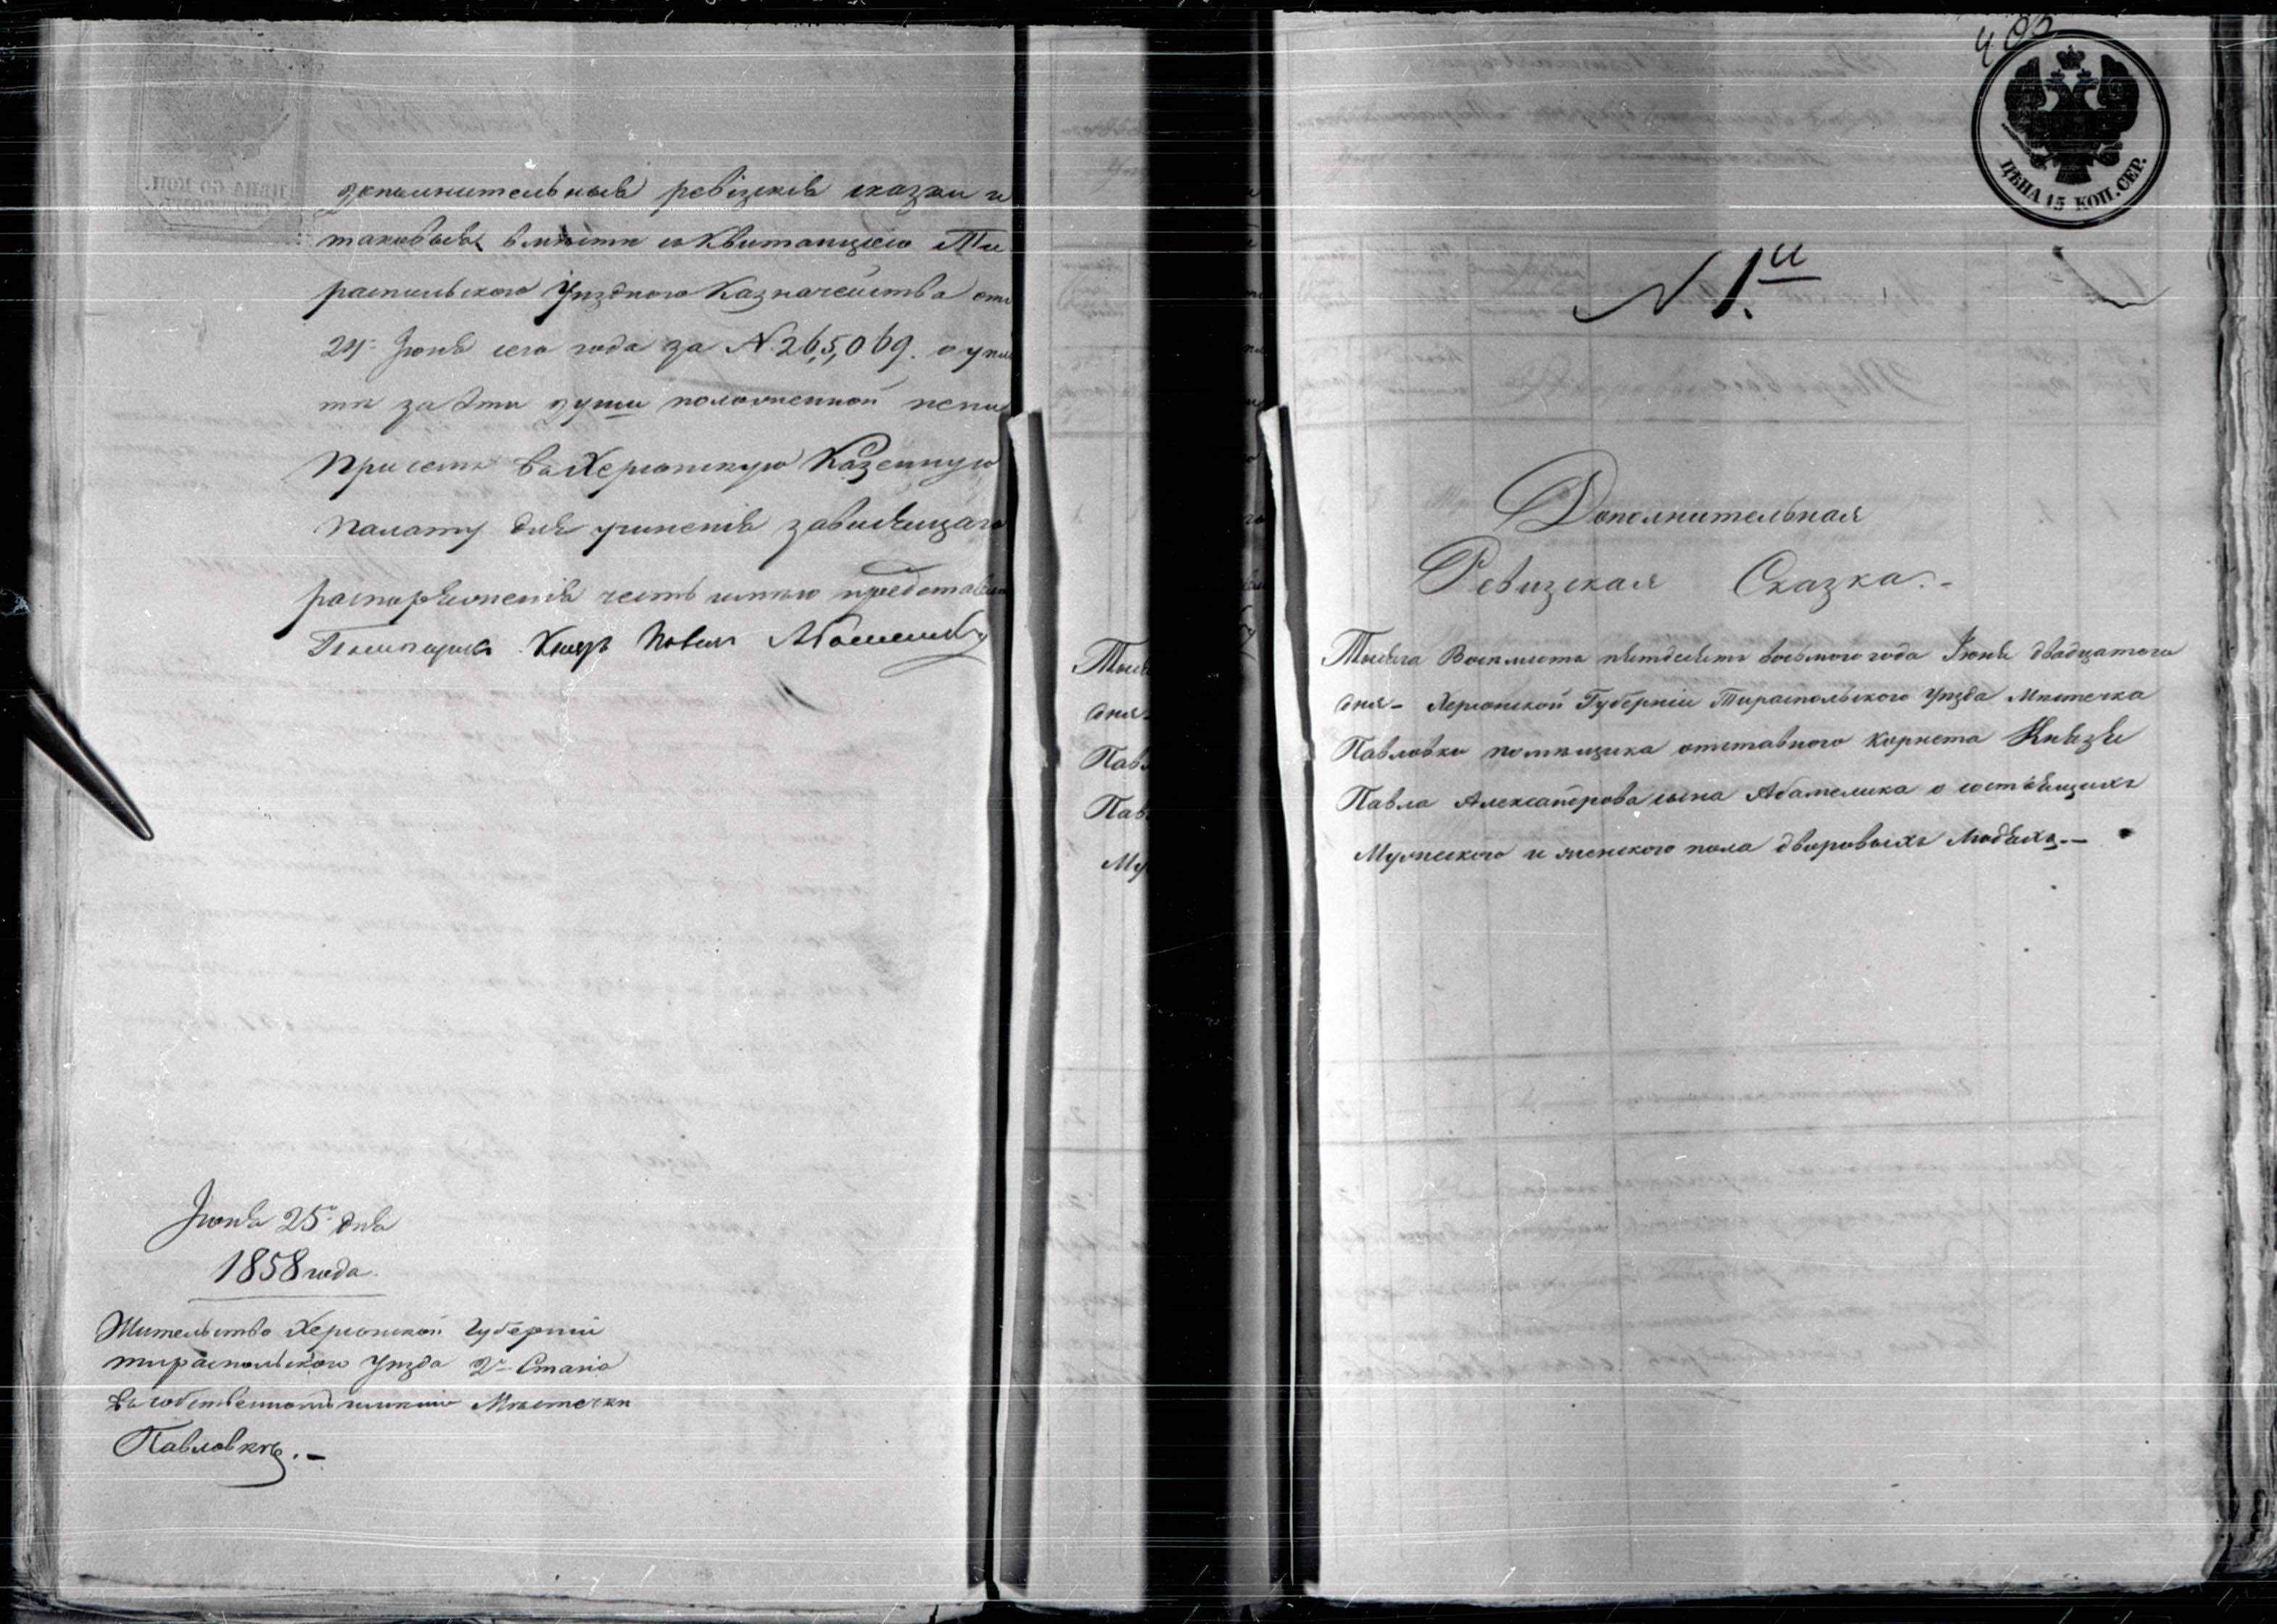 дополнительныя ревізскія сказки и
таковыя вместе съ Квитанціею Ти
распольского Уѣзднаго Казначейства отъ
24 Іюня сего года за №265,069. о упла
тѣ за эти души положенной пени
при семъ въ Херсонскую Казенную
Палату для учиненія зависящаго
распоряженія честь имѣю представить
Помѣщикъ Князь Павелъ Абамеликъ
Іюня 25 дня
1858 года
Жительство Херсонской Губерніи
Тираспольского Уѣзда 2го Стана
въ собственномъ имѣніи Мѣстечкѣ
Павловкѣ.-
405
ЦѢНА 15 КОП. СЕР.
№ 1й
Дополнительная
Ревизская Сказка.-
Тысяча Восемьсотъ пятьдесятъ восьмого года Іюня двадцатого
дня- Херсонской Губерніи Тираспольского Уѣзда Мѣстечка
Павловки помѣщика отставного Корнета Князя
Павла Александрова сына Абамелика о состоящихъ
Мужеского и женского пола дворовыхъ Людяхъ.-
Тыся
дня-
Павл
Пав
Му